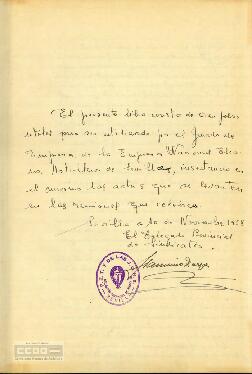 El presente libro consta de cien folios
utiles para ser utilizado por el Jurado de
Empresa de la Empresa Nacional Elcano,
Astilleros de Sevilla, insertando en
el mismo las actas que se levanten
en las reuniones que celebre.
Sevilla a 10 de Noviembre 1958
El Delegado Provincial
de Sindicatos
CCOO